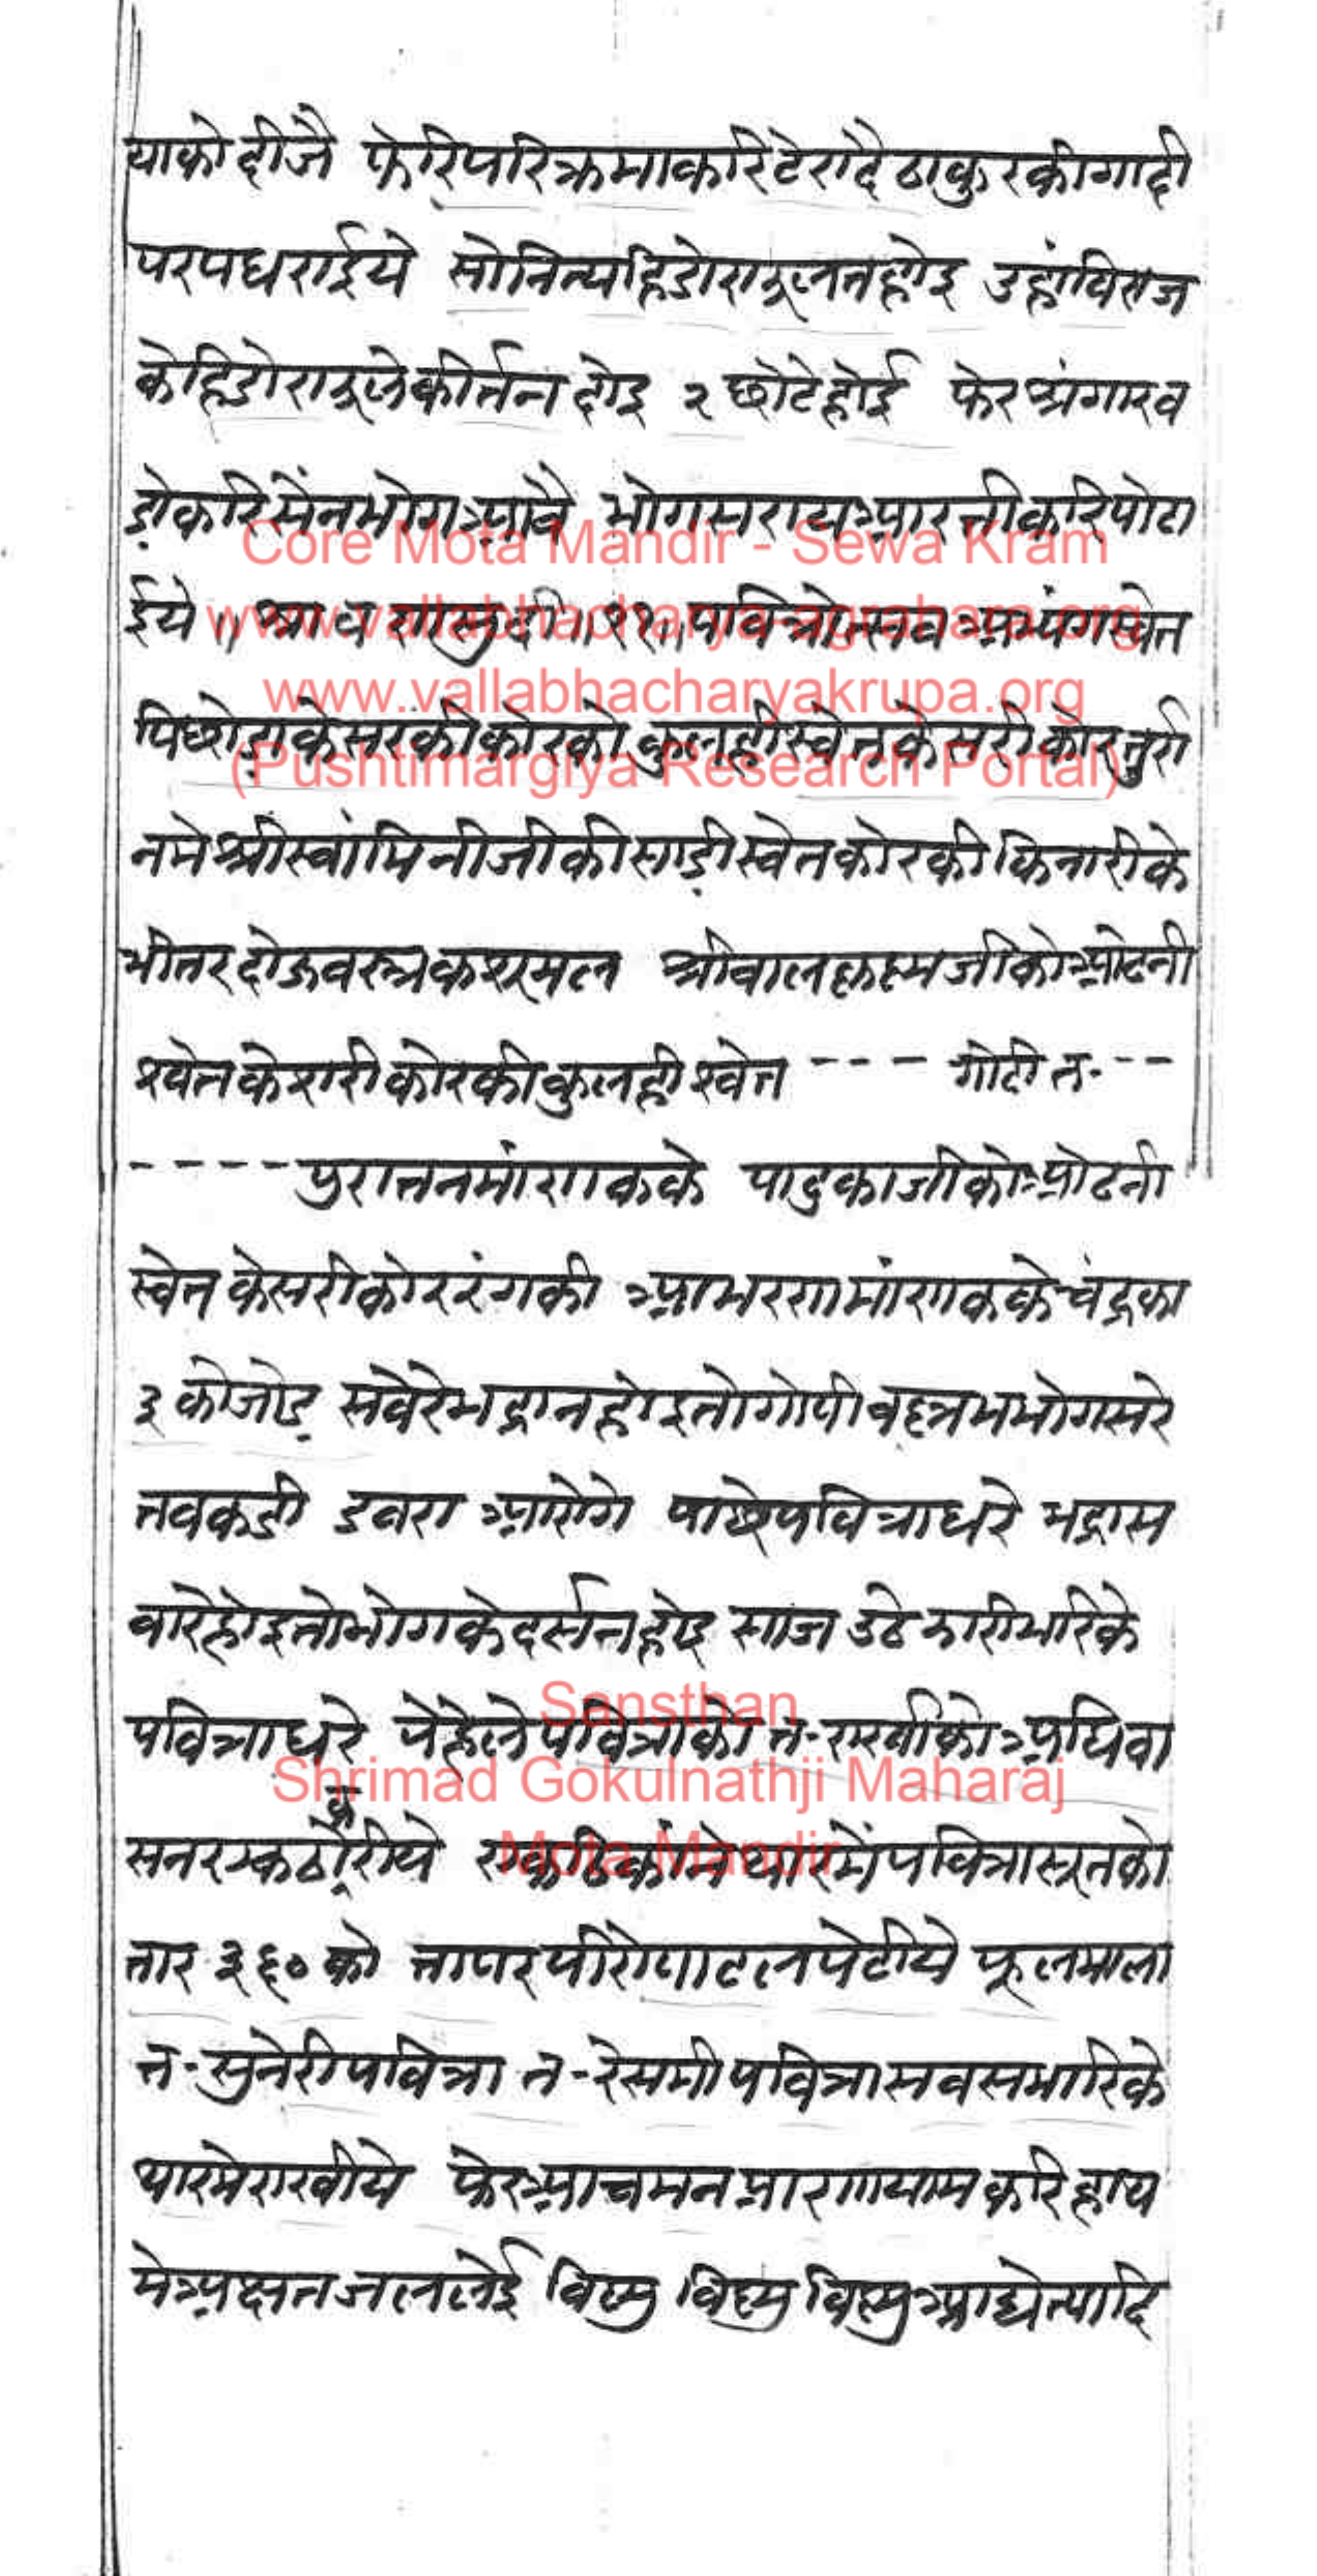 याको दीजै फेरि परिक्रमा करि टेरा दै ठाकुर की गादी
पर पधराईये सो नित्य हिडोरा झूलन होइ उहां विराज
के हिडोरा झूले कीर्तन होइ २ छोटे होई फेर श्रंगार व
ड़ो करि सेंन भोग आवै भोग सराय आरती करि पोढा
ईये ॥ श्रावण सुदी ॥ ११ ॥ पवित्रोत्सव अभ्यंग स्वेत
पिछोड़ा केसर की कोर को कुलही स्वेत केसरी कोर तुर्रा
नमे श्रीस्वांमिनीजी की साड़ी स्वेत कोर की किनारी के
भीतर दोऊ वस्त्र कश्रमल श्रीबालकृष्णजी को ओढनी
श्वेत केशरी कोर की कुलही श्वेत - - - गोटी त- - -
- - - - - पुरातन मांणक के पादुकाजी को ओढनी
स्वेत केसरी कोर रंग की आभरण मांणक के चंद्रका
३ को जोड़ सवेरे भद्रा न होइ तो गोपीवल्लभ भोग सरे
तब कडी डबरा आरोगे पाछे पवित्रा धरे भद्रा स
वारे होइ तो भोग के दर्सन होइ साज उठे झारी भरि के
पवित्रा धरे पेहेले पवित्रा को त- राखी को अधिवा
सन
थार में पवित्रा सूत को
तार ३६० को तापर पीरो पाट लपेटीये फूलमाला
त- सुनेरी पवित्रा त- रेसमी पवित्रा सब समारि के
थार मे राखीये फेर आचमन प्राणायाम करि हाथ
मे अक्षत जल लेई विष्णु विष्णु विष्णु आद्येत्यादि
Core Mota Mandir - Sewa Kram
www.vallabhacharya-agrahara.org
www.vallabhacharyakrupa.org
(Pushtimargiya Research Portal)
Sansthan
Shrimad Gokulnathji Maharaj
Mota Mandir